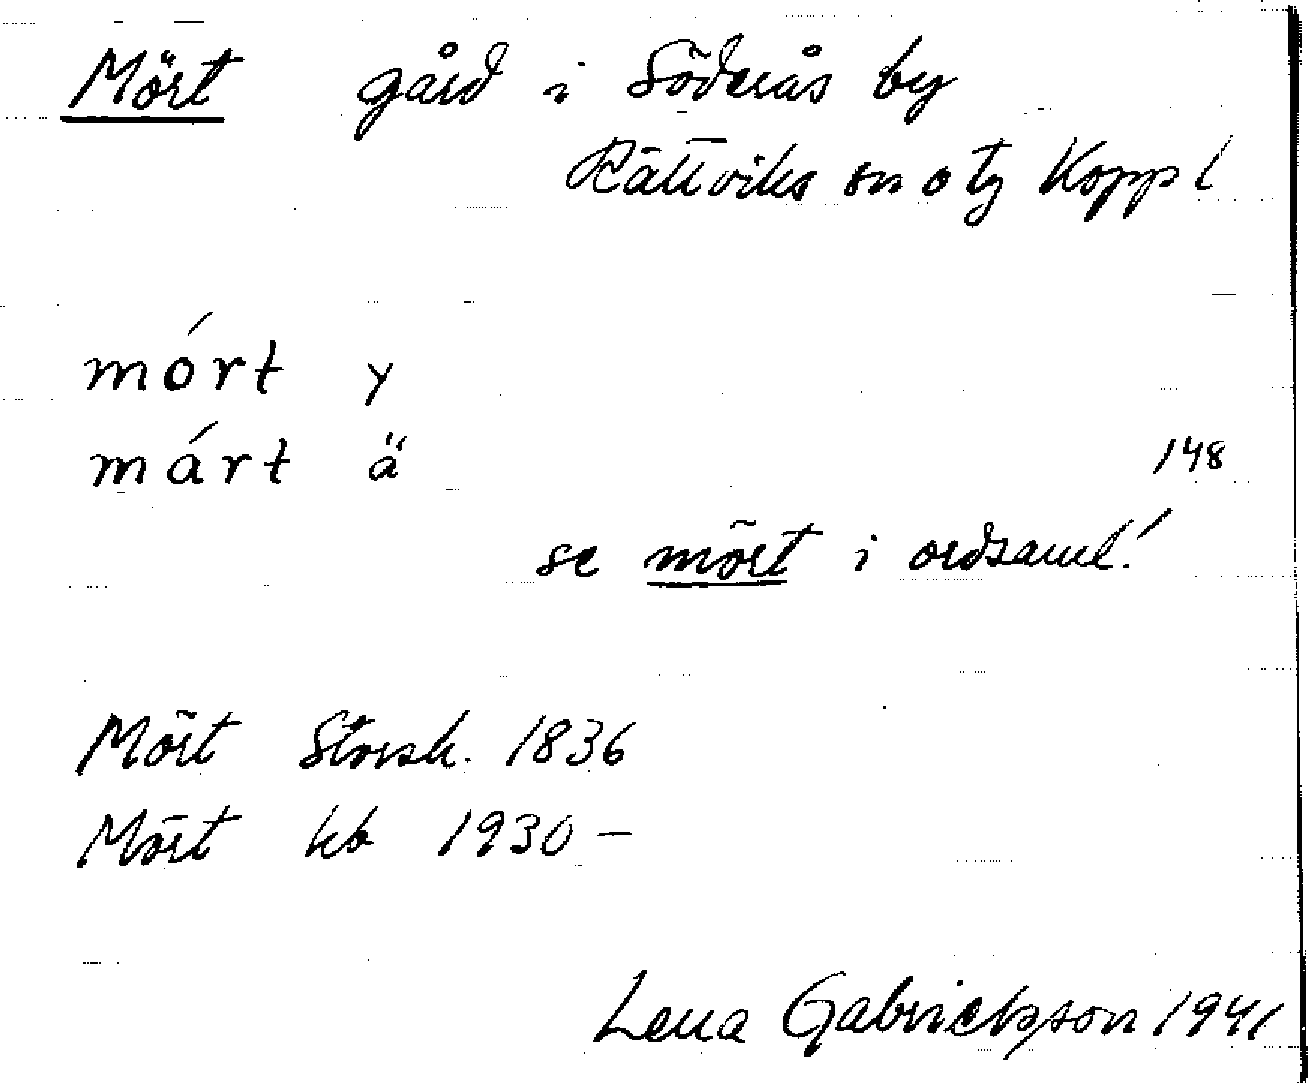 Mört gård i Söderås by
Rättviks sn o tg Koppl
mórt y
márt ä
148
se mört i ordsaml!
Mört Storsk. 1836
Mört kb 1930 –
Lena Gabrielsson 1941